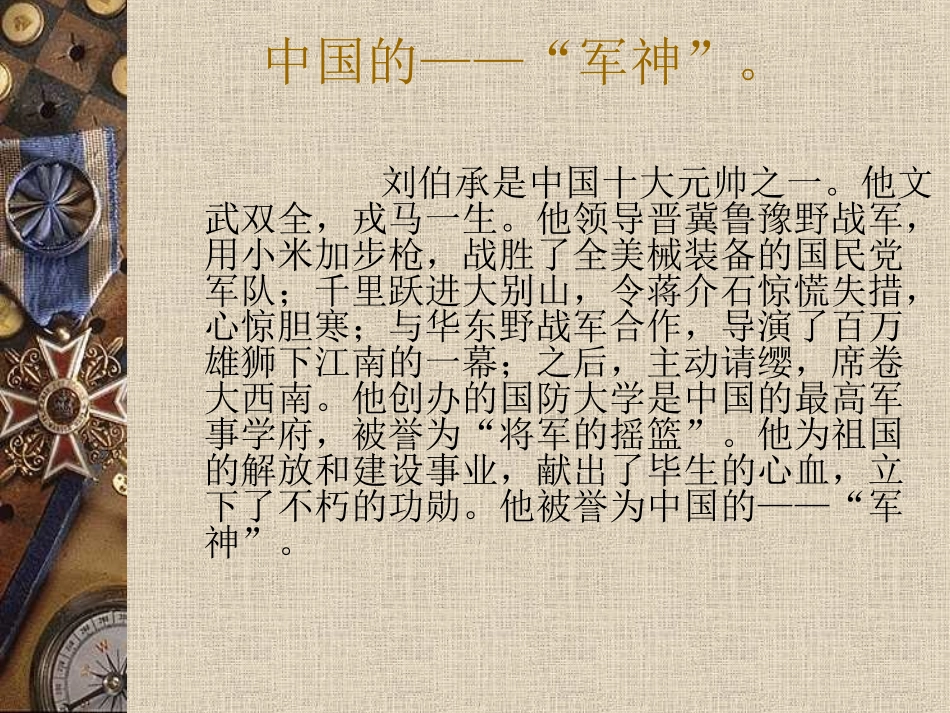 中国的——“军神”。
刘伯承是中国十大元帅之一。他文
武双全，戎马一生。他领导晋冀鲁豫野战军，
用小米加步枪，战胜了全美械装备的国民党
军队；千里跃进大别山，令蒋介石惊慌失措，
心惊胆寒；与华东野战军合作，导演了百万
雄狮下江南的一幕；之后，主动请缨，席卷
大西南。他创办的国防大学是中国的最高军
事学府，被誉为“将军的摇篮”。他为祖国
的解放和建设事业，献出了毕生的心血，立
下了不朽的功勋。他被誉为中国的——“军
神”。